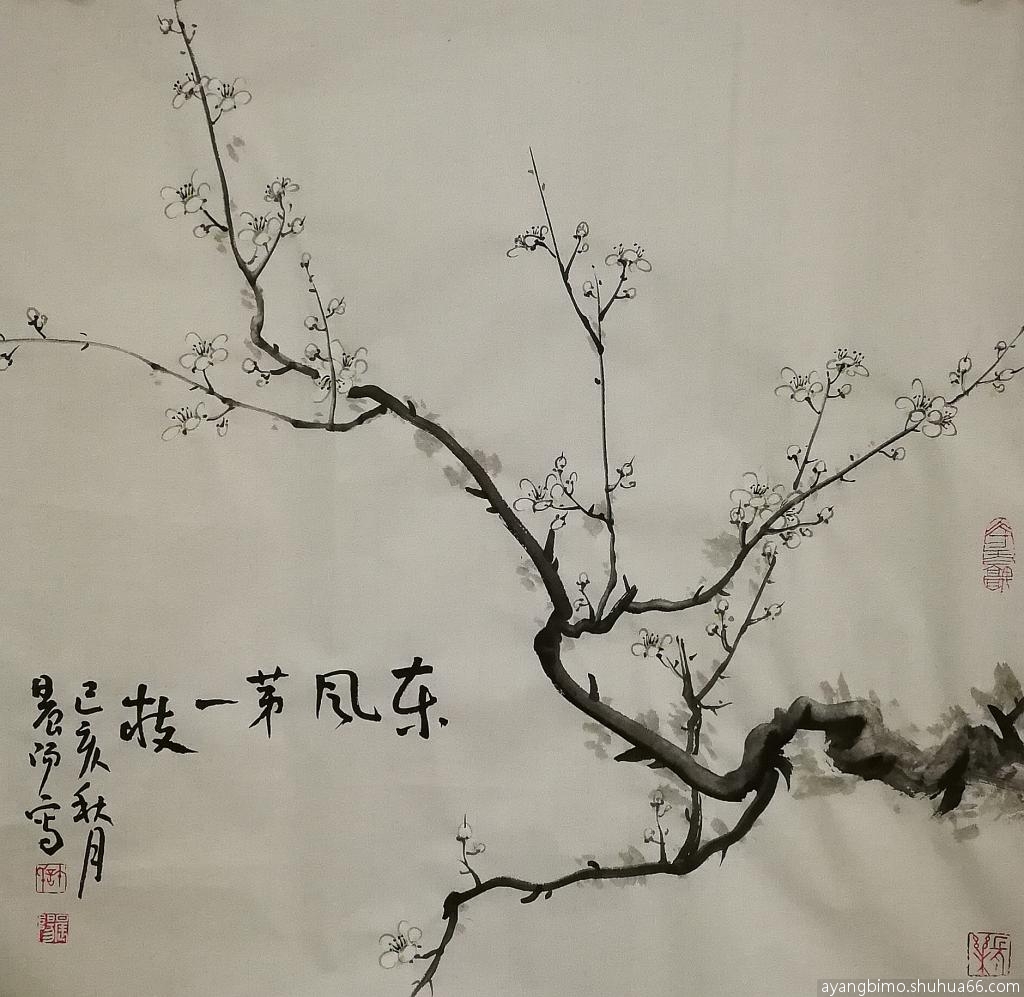 东风第一枝
己亥秋月
晨阳写
ayangbimo.shuhua66.com